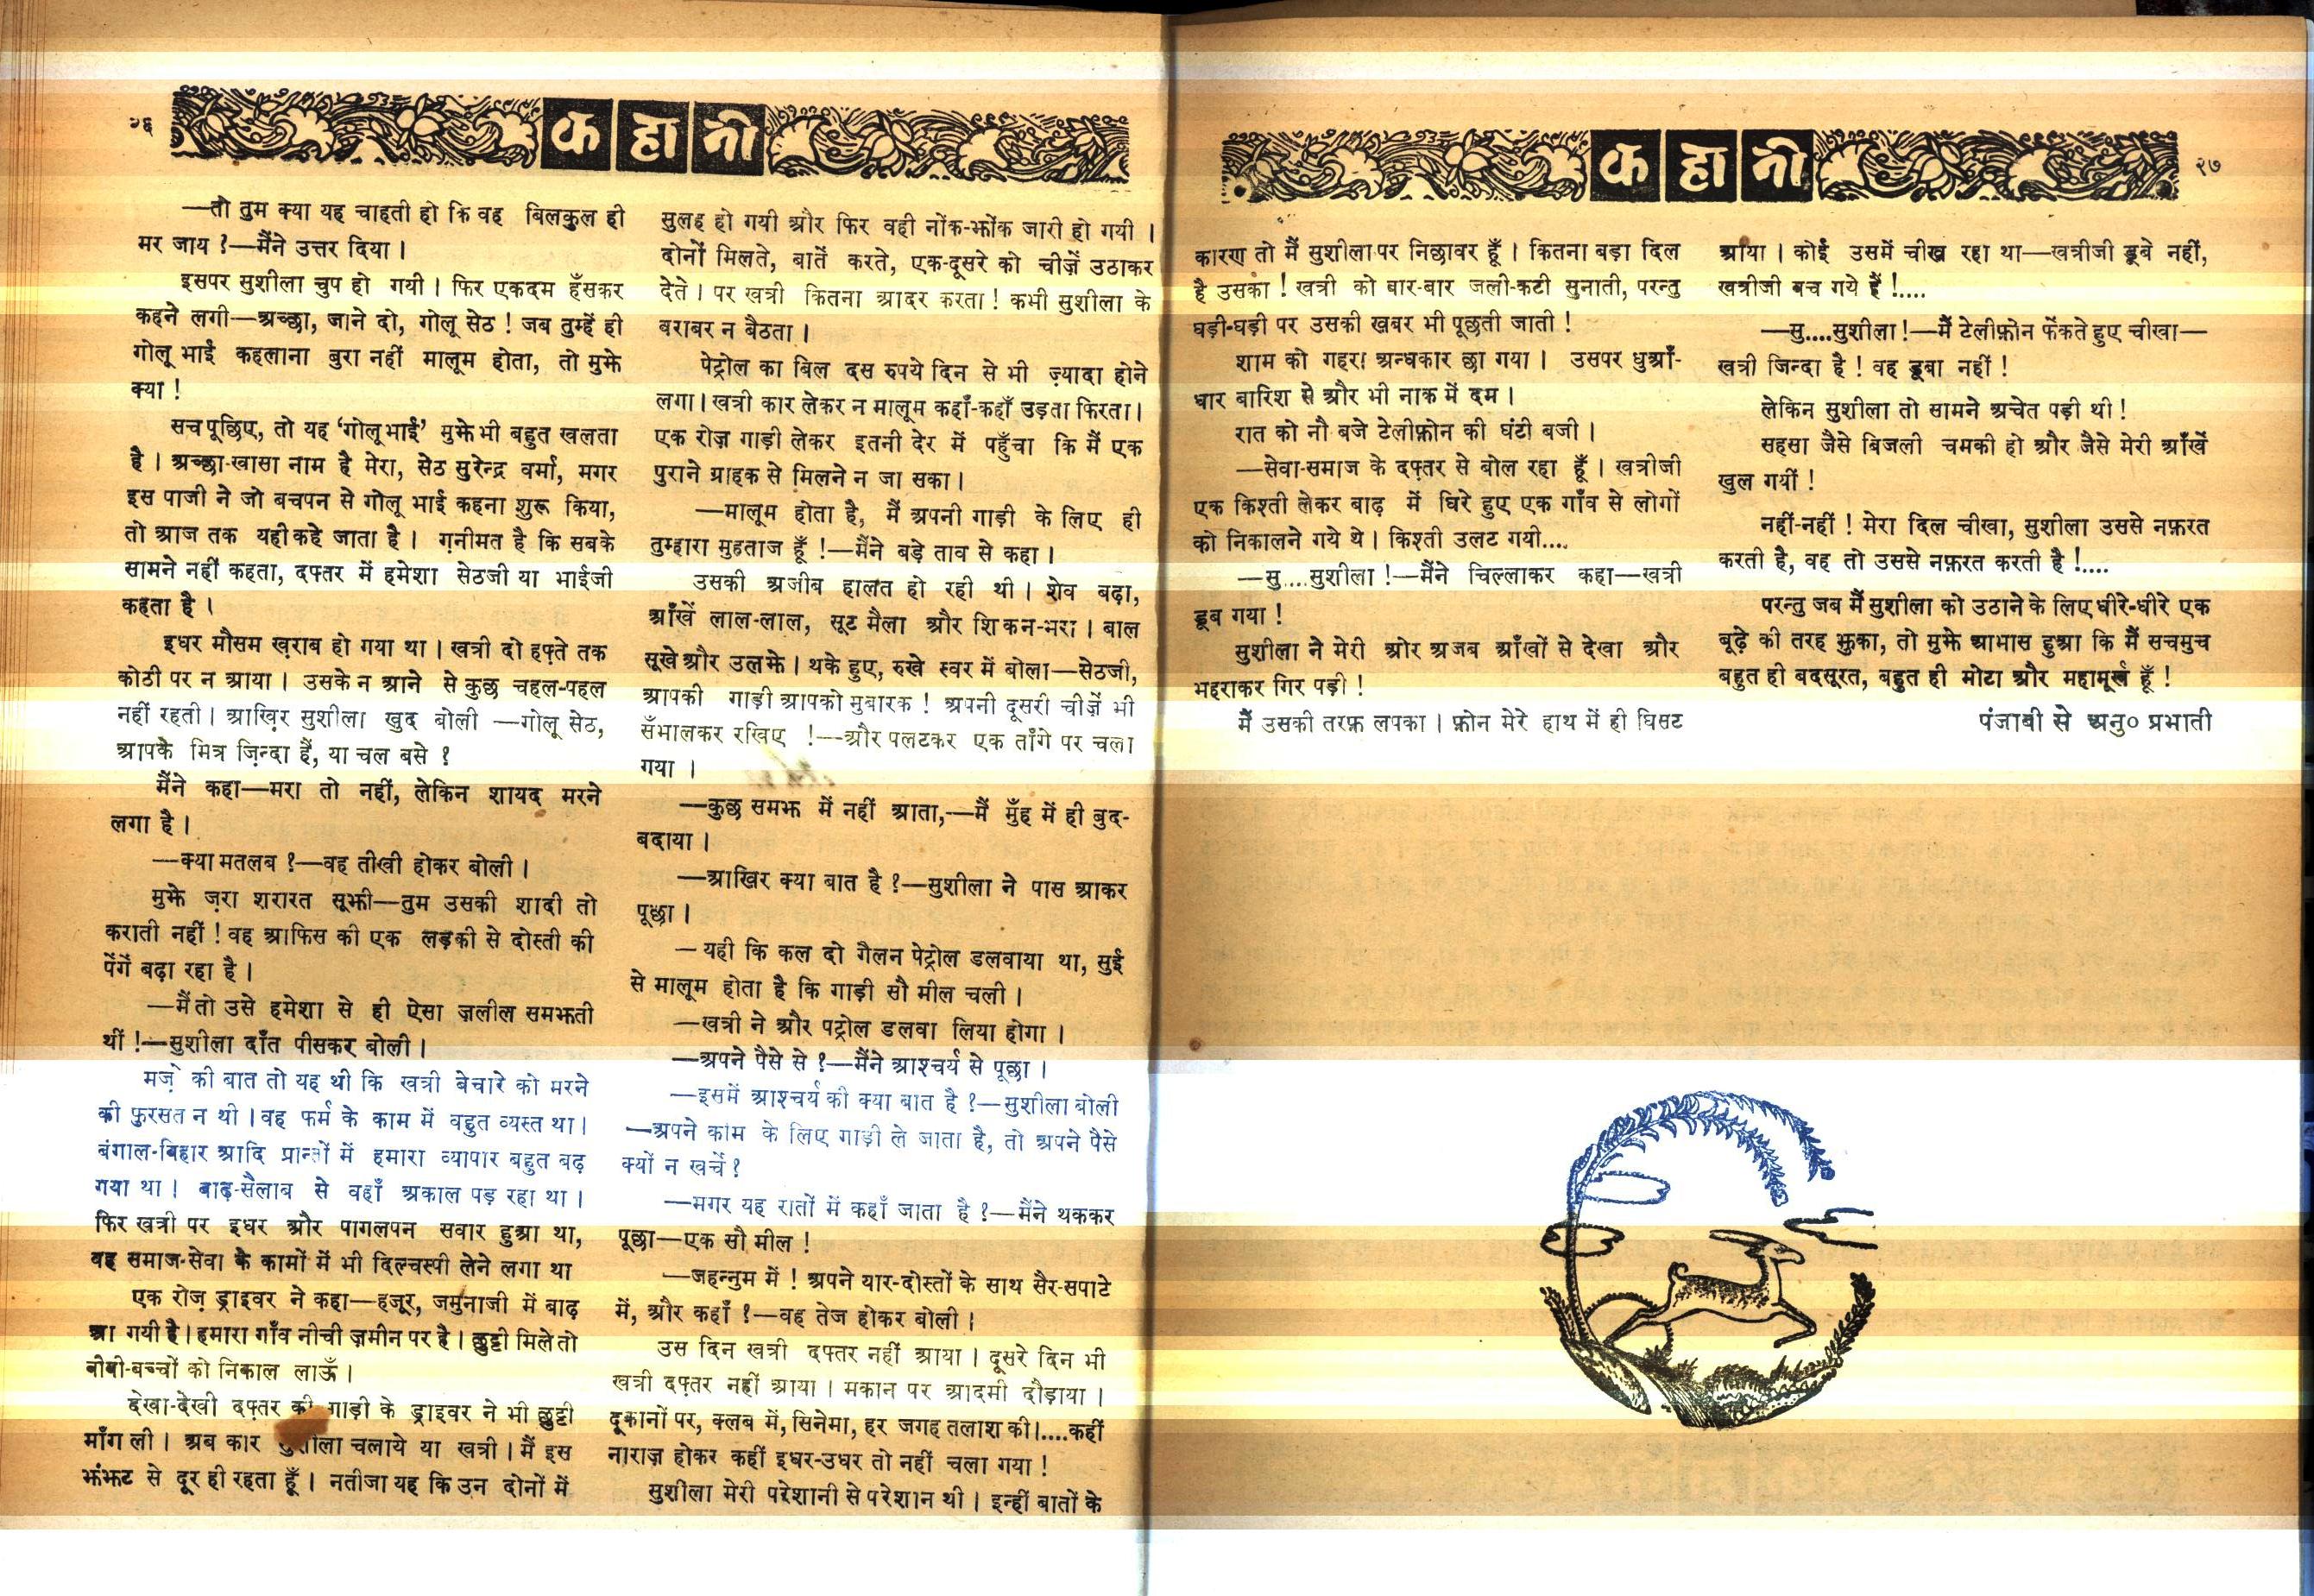 २६
कहानी
—तो तुम क्या यह चाहती हो कि वह बिलकुल ही
मर जाय ?—मैंने उत्तर दिया ।
इसपर सुशीला चुप हो गयी । फिर एकदम हँसकर
कहने लगी—अच्छा, जाने दो, गोलू सेठ ! जब तुम्हें ही
गोलू भाई कहलाना बुरा नहीं मालूम होता, तो मुझे
क्या !
सच पूछिए, तो यह ‘गोलू भाई’ मुझे भी बहुत खलता
है । अच्छा-खासा नाम है मेरा, सेठ सुरेन्द्र वर्मा, मगर
इस पाजी ने जो बचपन से गोलू भाई कहना शुरू किया,
तो आज तक यही कहे जाता है । ग़नीमत है कि सबके
सामने नहीं कहता, दफ्तर में हमेशा सेठजी या भाईजी
कहता है ।
इधर मौसम ख़राब हो गया था । खत्री दो हफ़्ते तक
कोठी पर न आया । उसके न आने से कुछ चहल-पहल
नहीं रहती । आख़िर सुशीला खुद बोली —गोलू सेठ,
आपके मित्र ज़िन्दा हैं, या चल बसे ?
मैंने कहा—मरा तो नहीं, लेकिन शायद मरने
लगा है ।
—क्या मतलब ?—वह तीखी होकर बोली ।
मुझे ज़रा शरारत सूझी—तुम उसकी शादी तो
कराती नहीं ! वह आफिस की एक लड़की से दोस्ती की
पेंगें बढ़ा रहा है ।
—मैं तो उसे हमेशा से ही ऐसा ज़लील समझती
थीं !—सुशीला दाँत पीसकर बोली ।
मज़े की बात तो यह थी कि खत्री बेचारे को मरने
की फुरसत न थी । वह फर्म के काम में बहुत व्यस्त था ।
बंगाल-बिहार आदि प्रान्तों में हमारा व्यापार बहुत बढ़
गया था । बाढ़-सैलाब से वहाँ अकाल पड़ रहा था ।
फिर खत्री पर इधर और पागलपन सवार हुआ था,
वह समाज-सेवा के कामों में भी दिल्चस्पी लेने लगा था
एक रोज़ ड्राइवर ने कहा—हजूर, जमुनाजी में बाढ़
आ गयी है । हमारा गाँव नीची ज़मीन पर है । छुट्टी मिले तो
बीबी-बच्चों को निकाल लाऊँ ।
देखा-देखी दफ़्तर की गाड़ी के ड्राइवर ने भी छुट्टी
माँग ली । अब कार सुशीला चलाये या खत्री । मैं इस
झंझट से दूर ही रहता हूँ । नतीजा यह कि उन दोनों में
सुलह हो गयी और फिर वही नोंक-झोंक जारी हो गयी ।
दोनों मिलते, बातें करते, एक-दूसरे को चीज़ें उठाकर
देते । पर खत्री कितना आदर करता ! कभी सुशीला के
बराबर न बैठता ।
पेट्रोल का बिल दस रुपये दिन से भी ज़्यादा होने
लगा । खत्री कार लेकर न मालूम कहाँ-कहाँ उड़ता फिरता ।
एक रोज़ गाड़ी लेकर इतनी देर में पहुँचा कि मैं एक
पुराने ग्राहक से मिलने न जा सका ।
—मालूम होता है, मैं अपनी गाड़ी के लिए ही
तुम्हारा मुहताज हूँ !—मैंने बड़े ताव से कहा ।
उसकी अजीब हालत हो रही थी । शेव बढ़ा,
आँखें लाल-लाल, सूट मैला और शिकन-भरा । बाल
सूखे और उलझे । थके हुए, रुखे स्वर में बोला—सेठजी,
आपकी गाड़ी आपको मुबारक ! अपनी दूसरी चीज़ें भी
सँभालकर रखिए !—-और पलटकर एक ताँगे पर चला
गया ।
—कुछ समझ में नहीं आता,—मैं मुँह में ही बुद-
बदाया ।
—आखिर क्या बात है ?—सुशीला ने पास आकर
पूछा ।
—यही कि कल दो गैलन पेट्रोल डलवाया था, सुई
से मालूम होता है कि गाड़ी सौ मील चली ।
—खत्री ने और पट्रोल डलवा लिया होगा ।
—अपने पैसे से ?—मैंने आश्चर्य से पूछा ।
—इसमें आश्चर्य की क्या बात है ?—सुशीला बोली
—अपने काम के लिए गाड़ी ले जाता है, तो अपने पैसे
क्यों न खर्चे ?
—मगर यह रातों में कहाँ जाता है ?—मैंने थककर
पूछा—एक सौ मील !
—जहन्नुम में ! अपने यार-दोस्तों के साथ सैर-सपाटे
में, और कहाँ ?—वह तेज होकर बोली ।
उस दिन खत्री दफ्तर नहीं आया । दूसरे दिन भी
खत्री दफ़्तर नहीं आया । मकान पर आदमी दौड़ाया ।
दूकानों पर, क्लब में, सिनेमा, हर जगह तलाश की।....कहीं
नाराज़ होकर कहीं इधर-उधर तो नहीं चला गया !
सुशीला मेरी परेशानी से परेशान थी । इन्हीं बातों के
कहानी
२७
कारण तो मैं सुशीला पर निछावर हूँ । कितना बड़ा दिल
है उसका ! खत्री को बार-बार जली-कटी सुनाती, परन्तु
घड़ी-घड़ी पर उसकी खबर भी पूछती जाती !
शाम को गहरा अन्धकार छा गया । उसपर धुआँ-
धार बारिश से और भी नाक में दम ।
रात को नौ बजे टेलीफ़ोन की घंटी बजी ।
—सेवा-समाज के दफ़्तर से बोल रहा हूँ । खत्रीजी
एक किश्ती लेकर बाढ़ में घिरे हुए एक गाँव से लोगों
को निकालने गये थे । किश्ती उलट गयी....
—सु....सुशीला !—मैंने चिल्लाकर कहा—खत्री
डूब गया !
सुशीला ने मेरी ओर अजब आँखों से देखा और
भहराकर गिर पड़ी !
मैं उसकी तरफ़ लपका । फ़ोन मेरे हाथ में ही घिसट
आया । कोई उसमें चीख रहा था—खत्रीजी डूबे नहीं,
खत्रीजी बच गये हैं !....
—सु....सुशीला !—मैं टेलीफ़ोन फेंकते हुए चीखा—
खत्री जिन्दा है ! वह डूबा नहीं !
लेकिन सुशीला तो सामने अचेत पड़ी थी !
सहसा जैसे बिजली चमकी हो और जैसे मेरी आँखें
खुल गयीं !
नहीं-नहीं ! मेरा दिल चीखा, सुशीला उससे नफ़रत
करती है, वह तो उससे नफ़रत करती है !....
परन्तु जब मैं सुशीला को उठाने के लिए धीरे-धीरे एक
बूढ़े की तरह झुका, तो मुझे आभास हुआ कि मैं सचमुच
बहुत ही बदसूरत, बहुत ही मोटा और महामूर्ख हूँ !
पंजाबी से अनु० प्रभाती